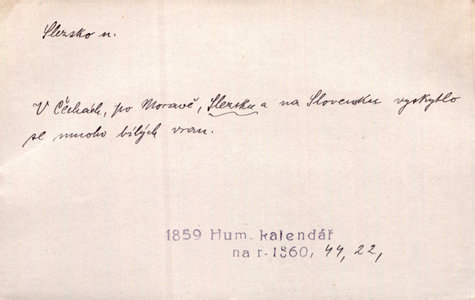 Slezsko n.
V Čechách, po Moravě, Slezsku a na Slovensku vyskytlo
se mnoho bílých vran.
1859 Hum. kalendář
na r. 1860, 44, 22,